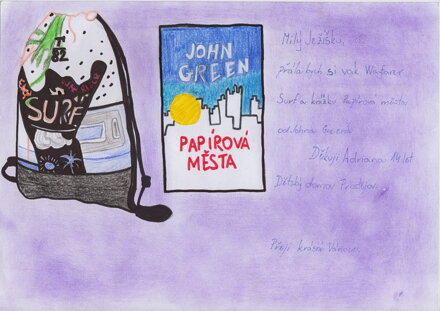 SURF
JOHN
GREEN
PAPÍROVÁ
MĚSTA
Milý Ježíšku,
Přála bych si vak Wayfarer
Surf a knížku Papírová města
od Johna Greena
Děkuji Adriana 14 let
Dětský domov
Přeji krásné Vánoce